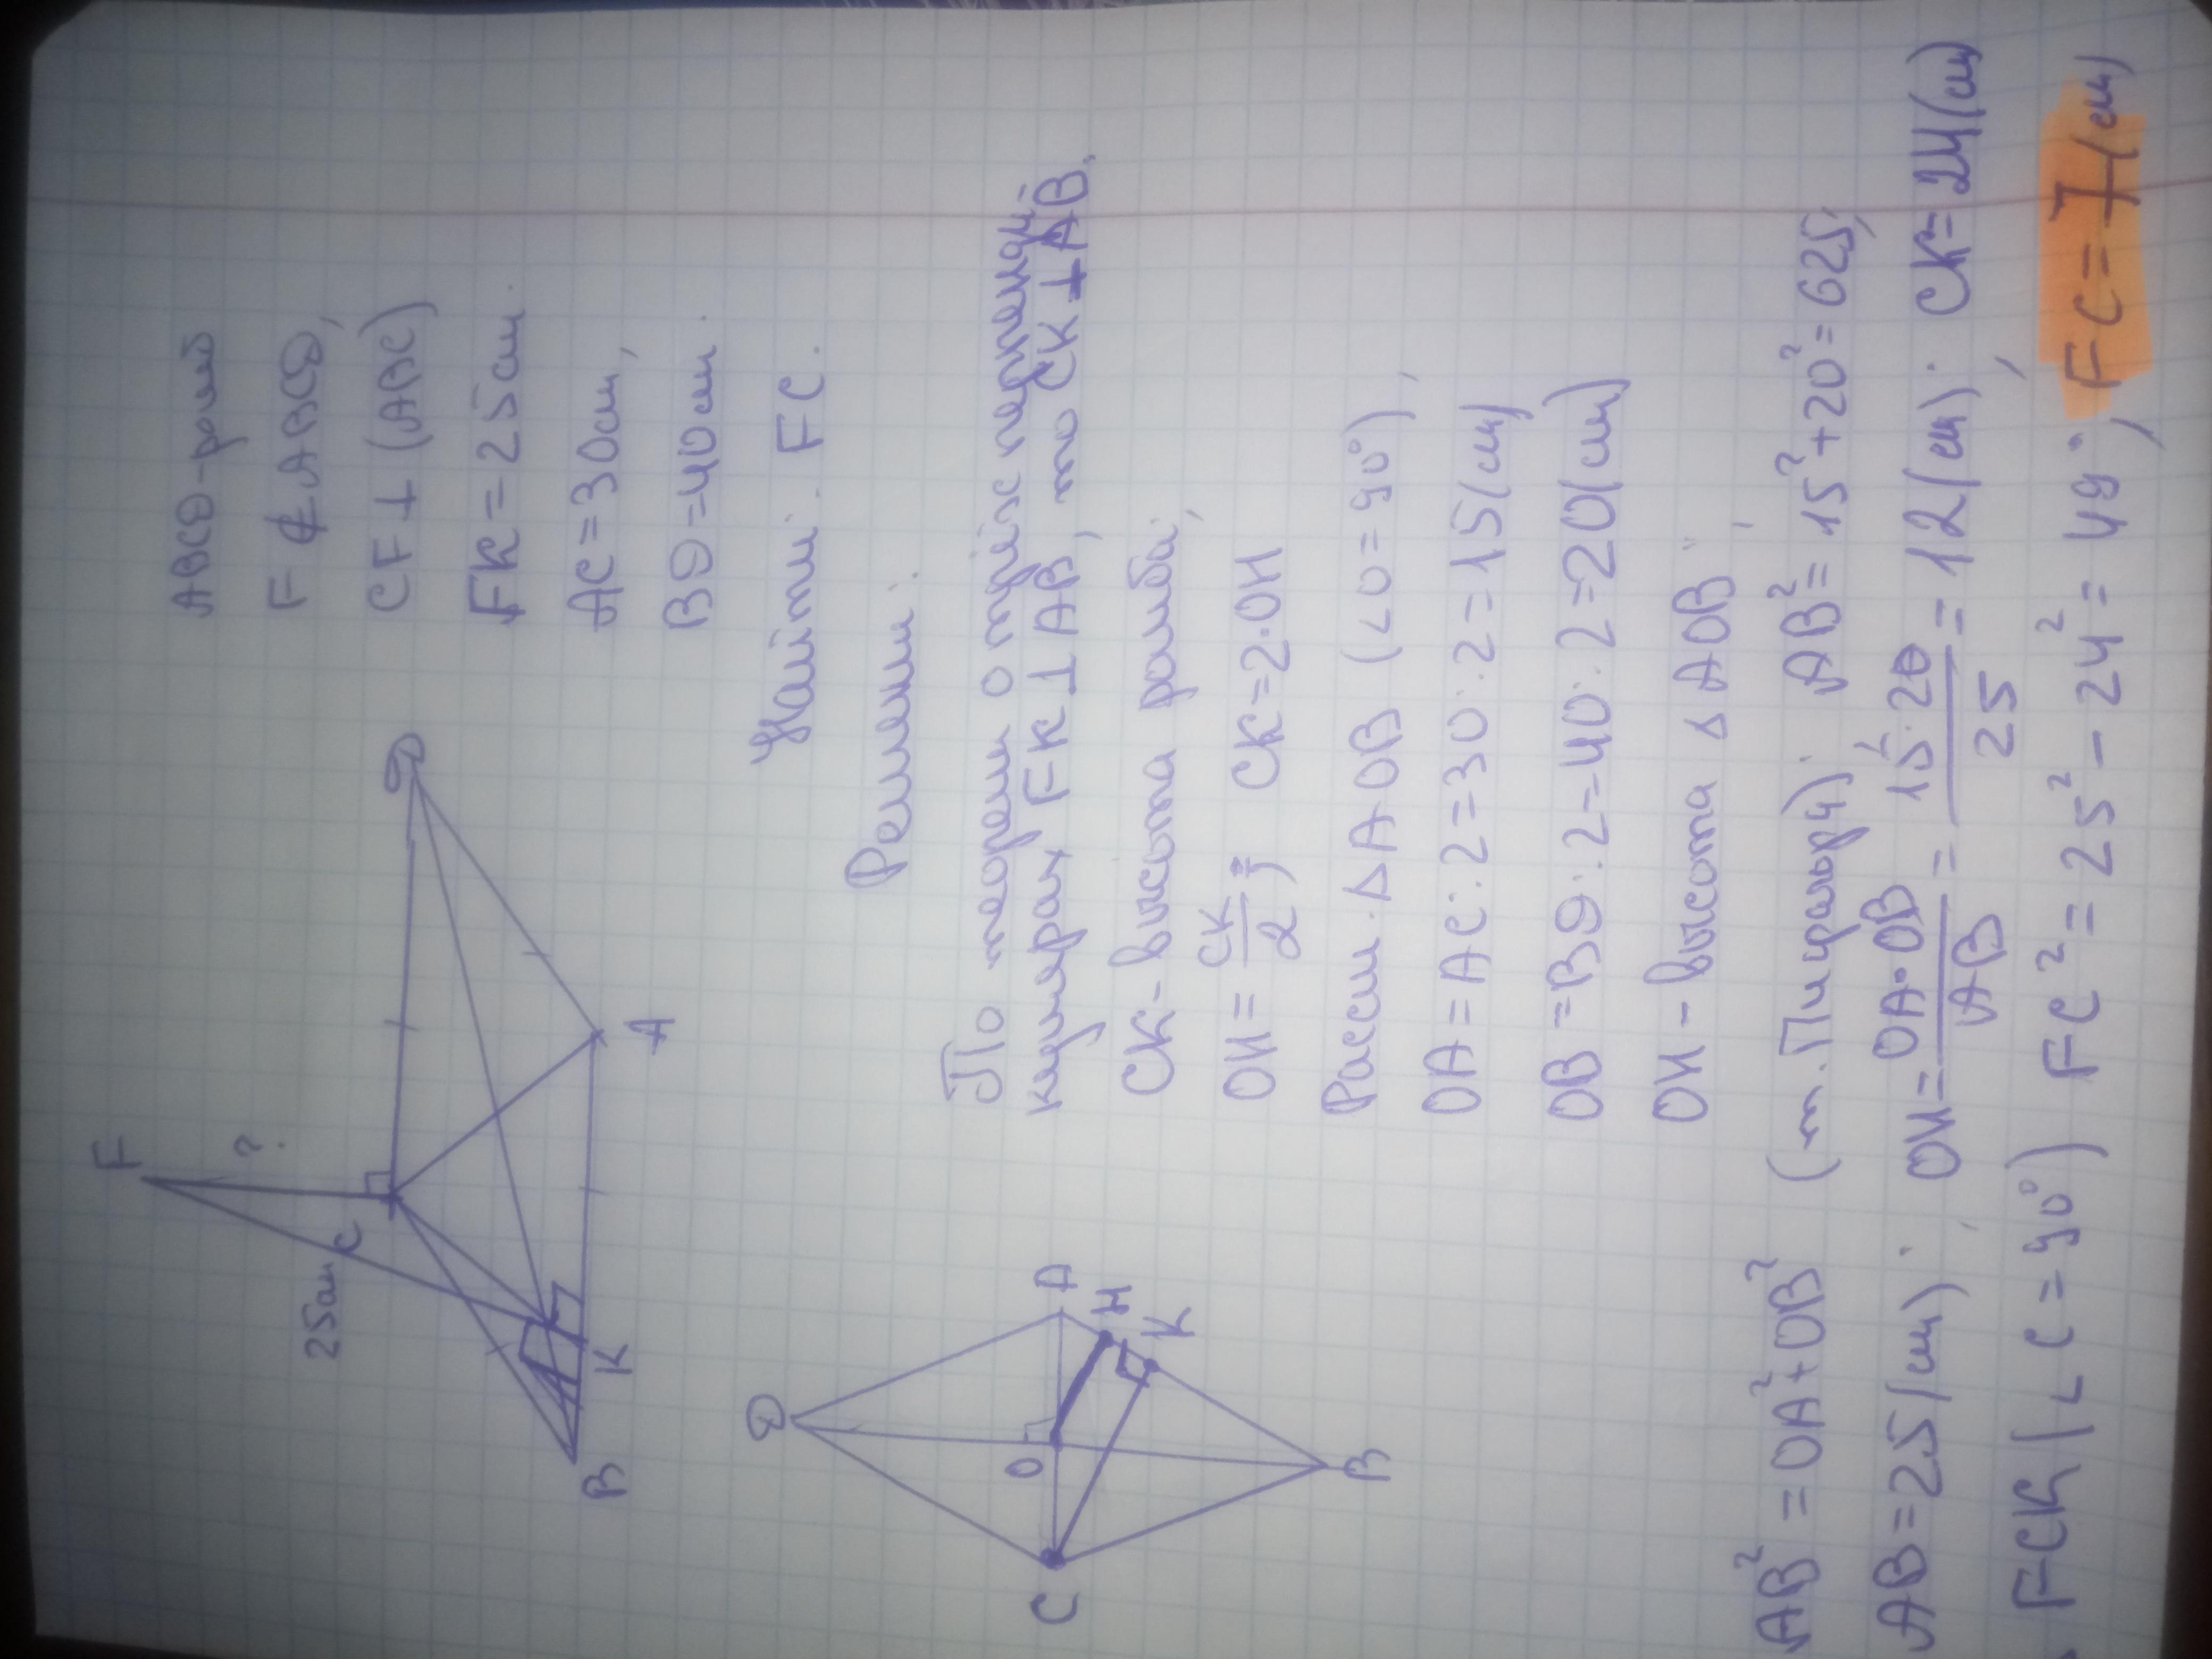 ABCD-ромб
F ∉ ABCD,
CF ⊥ (ABC)
FK = 25 см.
AC = 30 см,
BD = 40 см.
Найти: FC.
F
?
C
25 см
D
A
K
B
Решени:
По теорем о трёх перпенди-
кулярах FK ⊥ AB, то CK ⊥ AB.
CK - высота ромба;
OH = CK/2; CK = 2·OH
Рассм. ΔAOB (∠O = 90°),
OA = AC:2 = 30:2 = 15 (см)
OB = BD:2 = 40:2 = 20 (см)
OH - высота ΔAOB;
D
O
A
H
K
C
B
AB² = OA² + OB² (т. Пифагор). AB² = 15² + 20² = 625;
AB = 25 (см); OH = OA·OB/AB = 15·20/25 = 12 (см). CK = 24 (см)
FCK (∠C = 90°) FC² = 25² - 24² = 49; FC = 7 (см)